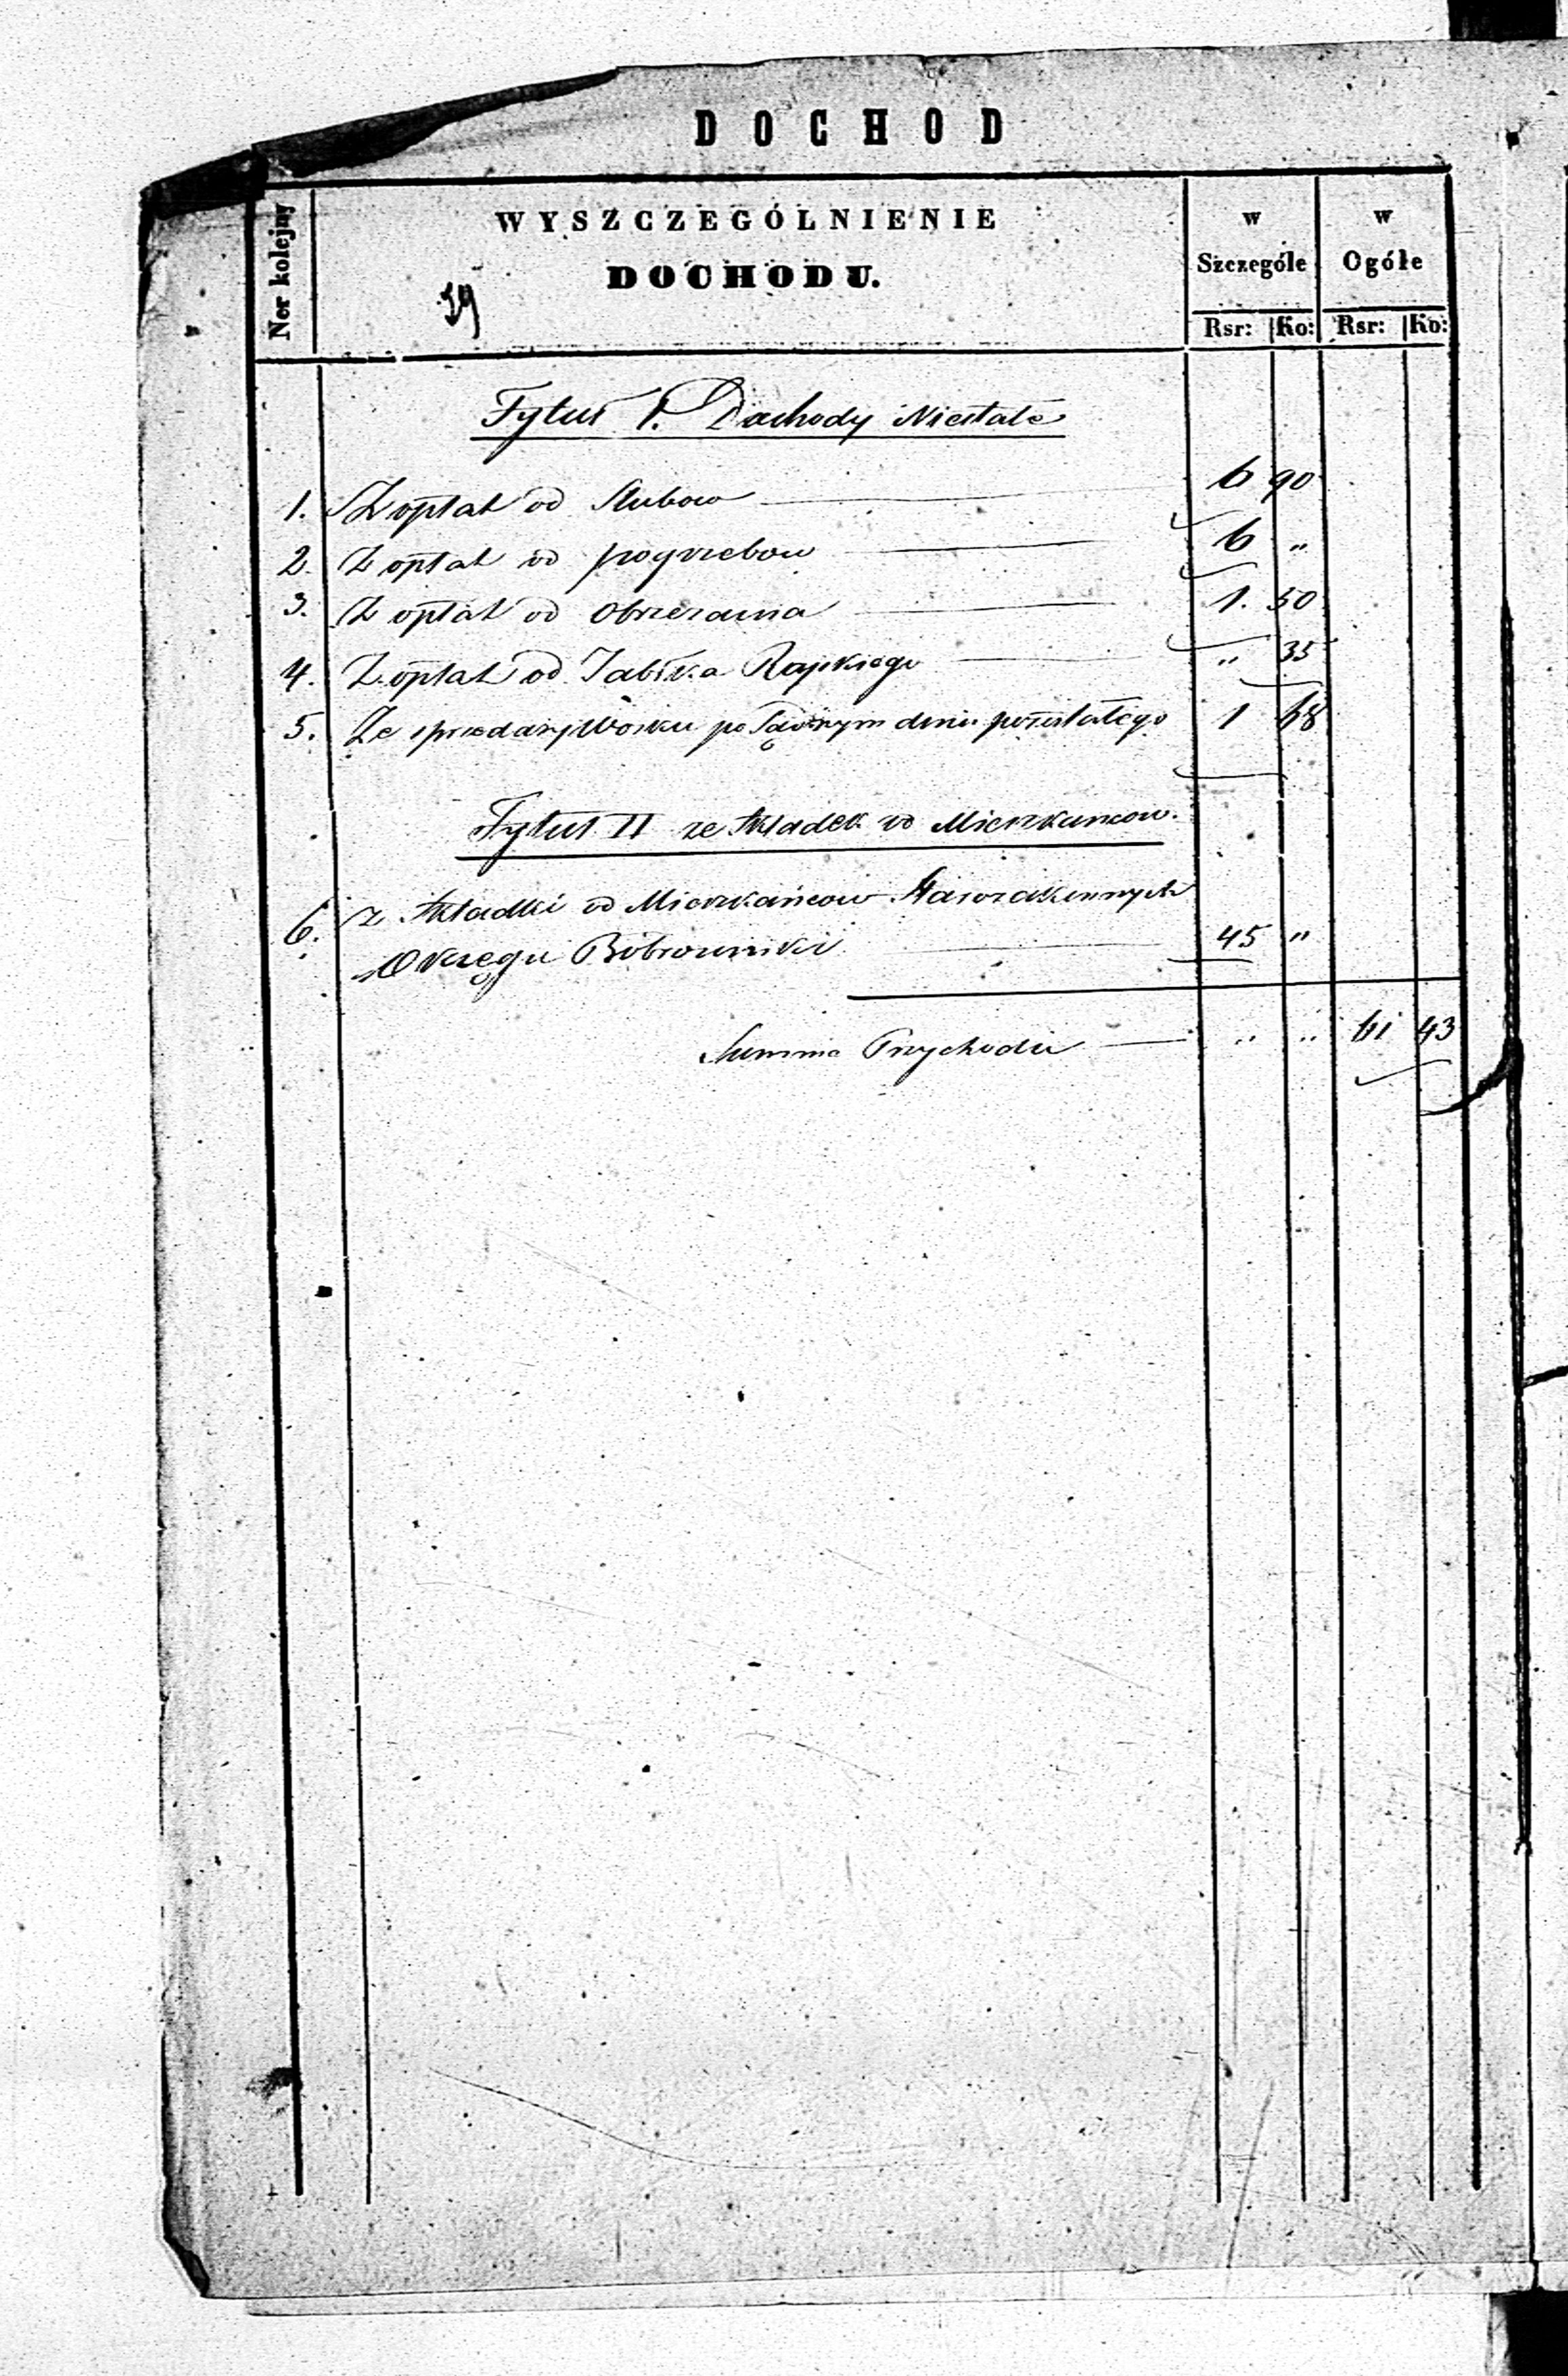 DOCHOD
Ner kolejny
WYSZCZEGÓLNIENIE
DOCHODU.
w Szczególe
w Ogóle
Rsr: Ko: Rsr: Ko:
59
Tytuł I. Dochody Niestałe
1. Z opłat od Slubow 6 90
2. Z opłat od pogrzebow 6 "
3. Z opłat od Obrzezania 1. 50
4. Z opłat od Jabłka Rajskiego " 35
5. Ze sprzedarzy Wosku po Sądnym dniu pozostałego 1 68
Tytuł II ze Składek od Mieszkancow.
6. Z Składki od Mieszkańcow Starozakonnych
Okręgu Bobrowniki 45 "
Summa Przychodu " " 61 43